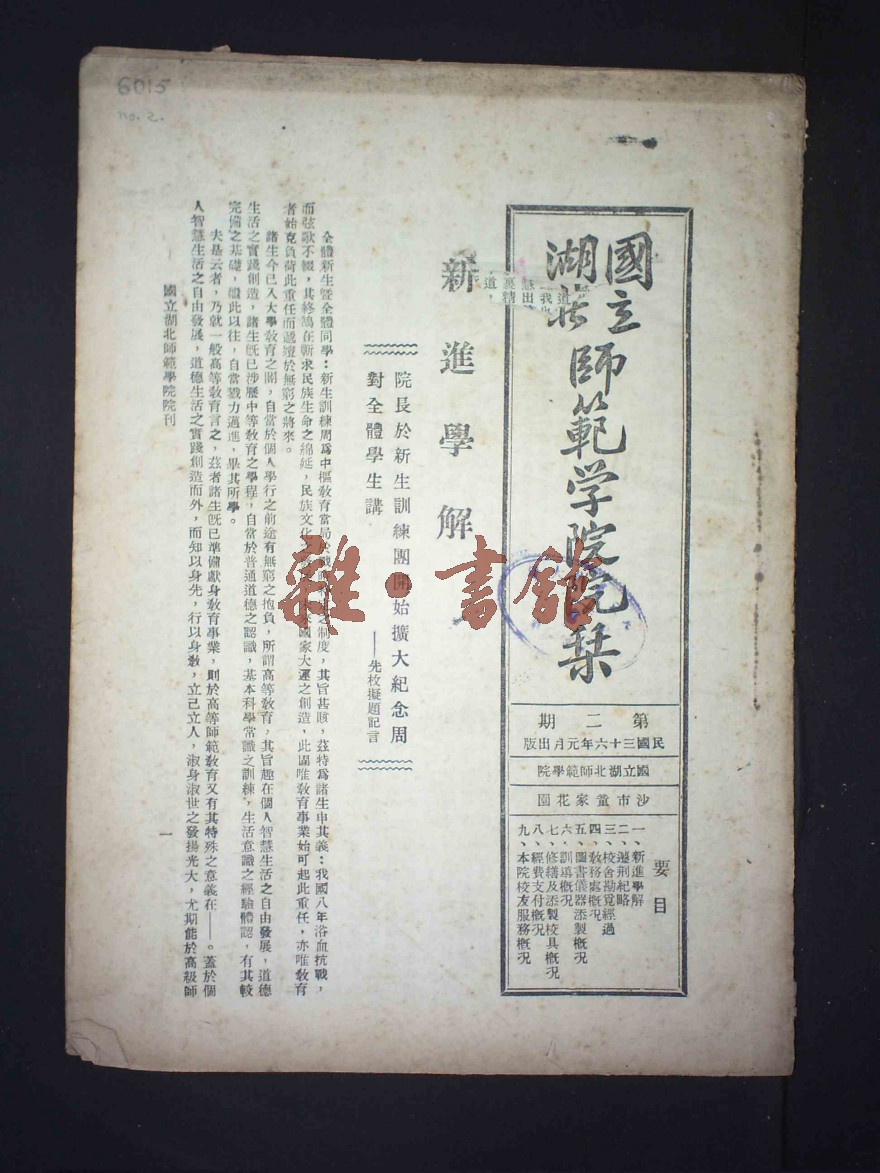 6015
no. 2.
國立湖北師範学院院栞
第二期
民國三十六年元月出版
國立湖北師範學院
沙市童家花園
要目
一、新進學解
二、遷荆紀略
三、校舍勘覓經過
四、教務處概况
五、圖書儀器添製概况
六、訓導概况
七、修繕及添製校具概况
八、經費支付概况
九、本院校友服務概况
新進學解
院長於新生訓練團開始擴大紀念周
對全體學生講
——先校擬題記言
全體新生暨全體同學：新生訓練周爲中樞教育當局於戰 制度，其旨甚賅，茲特爲諸生申其義：我國八年浴血抗戰，
而弦歌不輟，其終鵠在蘄求民族生命之綿延，民族文化之 國家大運之創造，此圖唯教育事業始可起此重任，亦唯教育
者始克負荷此重任而遞嬗於無窮之將來。
諸生今已入大學教育之關，自當於個人學行之前途有無窮之抱負，所謂高等教育，其旨趣在個人智慧生活之自由發展，道德
生活之實踐創造，諸生旣已涉歷中等教育之學程，自當於普通道德之認識，基本科學常識之訓練，生活意識之經驗體認，有其較
完備之基礎，續此以往，自當戮力邁進，畢其所學。
夫是云者，乃就一般高等教育言之，茲者諸生旣已準備獻身教育事業，則於高等師範教育又有其特殊之意義在——。蓋於個
人智慧生活之自由發展，道德生活之實踐創造而外，而知以身先，行以身教，立己立人，淑身淑世之發揚光大，尤期能於高級師
國立湖北師範學院院刊
一
雜·書館